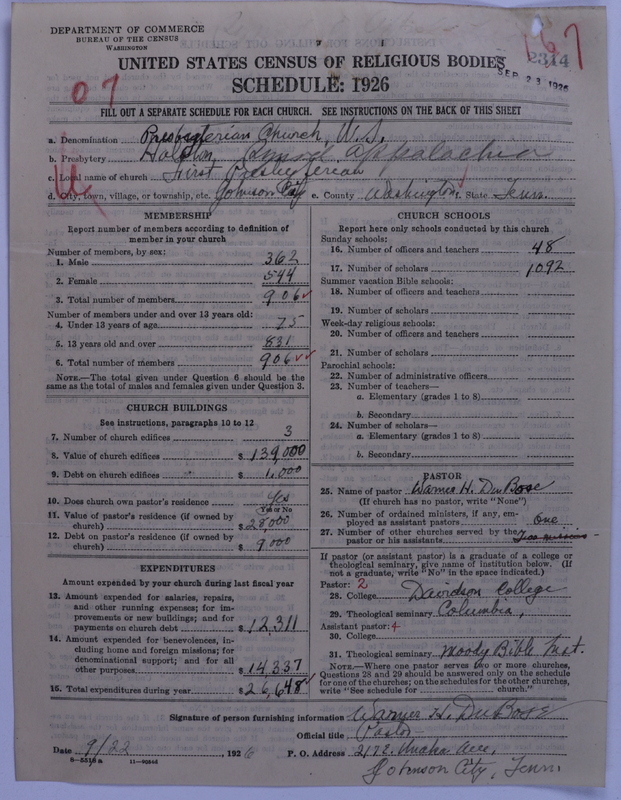 DEPARTMENT OF COMMERCE
BUREAU OF THE CENSUS
WASHINGTON
UNITED STATES CENSUS OF RELIGIOUS BODIES
SCHEDULE: 1926
2314
SEP 23 1926
167
07
FILL OUT A SEPARATE SCHEDULE FOR EACH CHURCH. SEE INSTRUCTIONS ON THE BACK OF THIS SHEET
a. Denomination Presbyterian Church, U.S.
b. Presbytery Holston, Synod Appalachia
c. Local name of church First Presbyterian
d. City, town, village, or township, etc. Johnson City e. County Washington f. State Tenn.
MEMBERSHIP
Report number of members according to definition of member in your church
Number of members, by sex:
1. Male 362
2. Female 544
3. Total number of members 906
Number of members under and over 13 years old:
4. Under 13 years of age 75
5. 13 years old and over 831
6. Total number of members 906
NOTE.—The total given under Question 6 should be the
same as the total of males and females given under Question 3.
CHURCH BUILDINGS
See instructions, paragraphs 10 to 12
7. Number of church edifices 3
8. Value of church edifices $ 139,000
9. Debt on church edifices $ 1,000
10. Does church own pastor's residence Yes
Yes or No
11. Value of pastor's residence (if owned by
church) $ 28000
12. Debt on pastor's residence (if owned by
church) $ 9000
EXPENDITURES
Amount expended by your church during last fiscal year
13. Amount expended for salaries, repairs,
and other running expenses; for im-
provements or new buildings; and for
payments on church debt $ 12,311
14. Amount expended for benevolences, in-
cluding home and foreign missions; for
denominational support; and for all
other purposes $ 14,337
15. Total expenditures during year $ 26,648
CHURCH SCHOOLS
Report here only schools conducted by this church
Sunday schools:
16. Number of officers and teachers 48
17. Number of scholars 1092
Summer vacation Bible schools:
18. Number of officers and teachers
19. Number of scholars
Week-day religious schools:
20. Number of officers and teachers
21. Number of scholars
Parochial schools:
22. Number of administrative officers
23. Number of teachers—
a. Elementary (grades 1 to 8)
b. Secondary
24. Number of scholars—
a. Elementary (grades 1 to 8)
b. Secondary
PASTOR
25. Name of pastor Warner H. DuBose
(If church has no pastor, write "None")
26. Number of ordained ministers, if any, em-
ployed as assistant pastors One
27. Number of other churches served by the
pastor or his assistants
If pastor (or assistant pastor) is a graduate of a college or
theological seminary, give name of institution below. (If
not a graduate, write "No" in the space indicated.)
Pastor: 2
28. College Davidson College
29. Theological seminary Columbia,
Assistant pastor: 4
30. College
31. Theological seminary Moody Bible Inst.
NOTE.—Where one pastor serves two or more churches,
Questions 28 and 29 should be answered only on the schedule
for one of the churches; on the schedules for the other churches,
write "See schedule for church."
Signature of person furnishing information Warner H. DuBose
Official title Pastor
Date 9/22, 1926 P. O. Address 2172 Unaka Ave,
Johnson City, Tenn.
8-5518a 11-90846